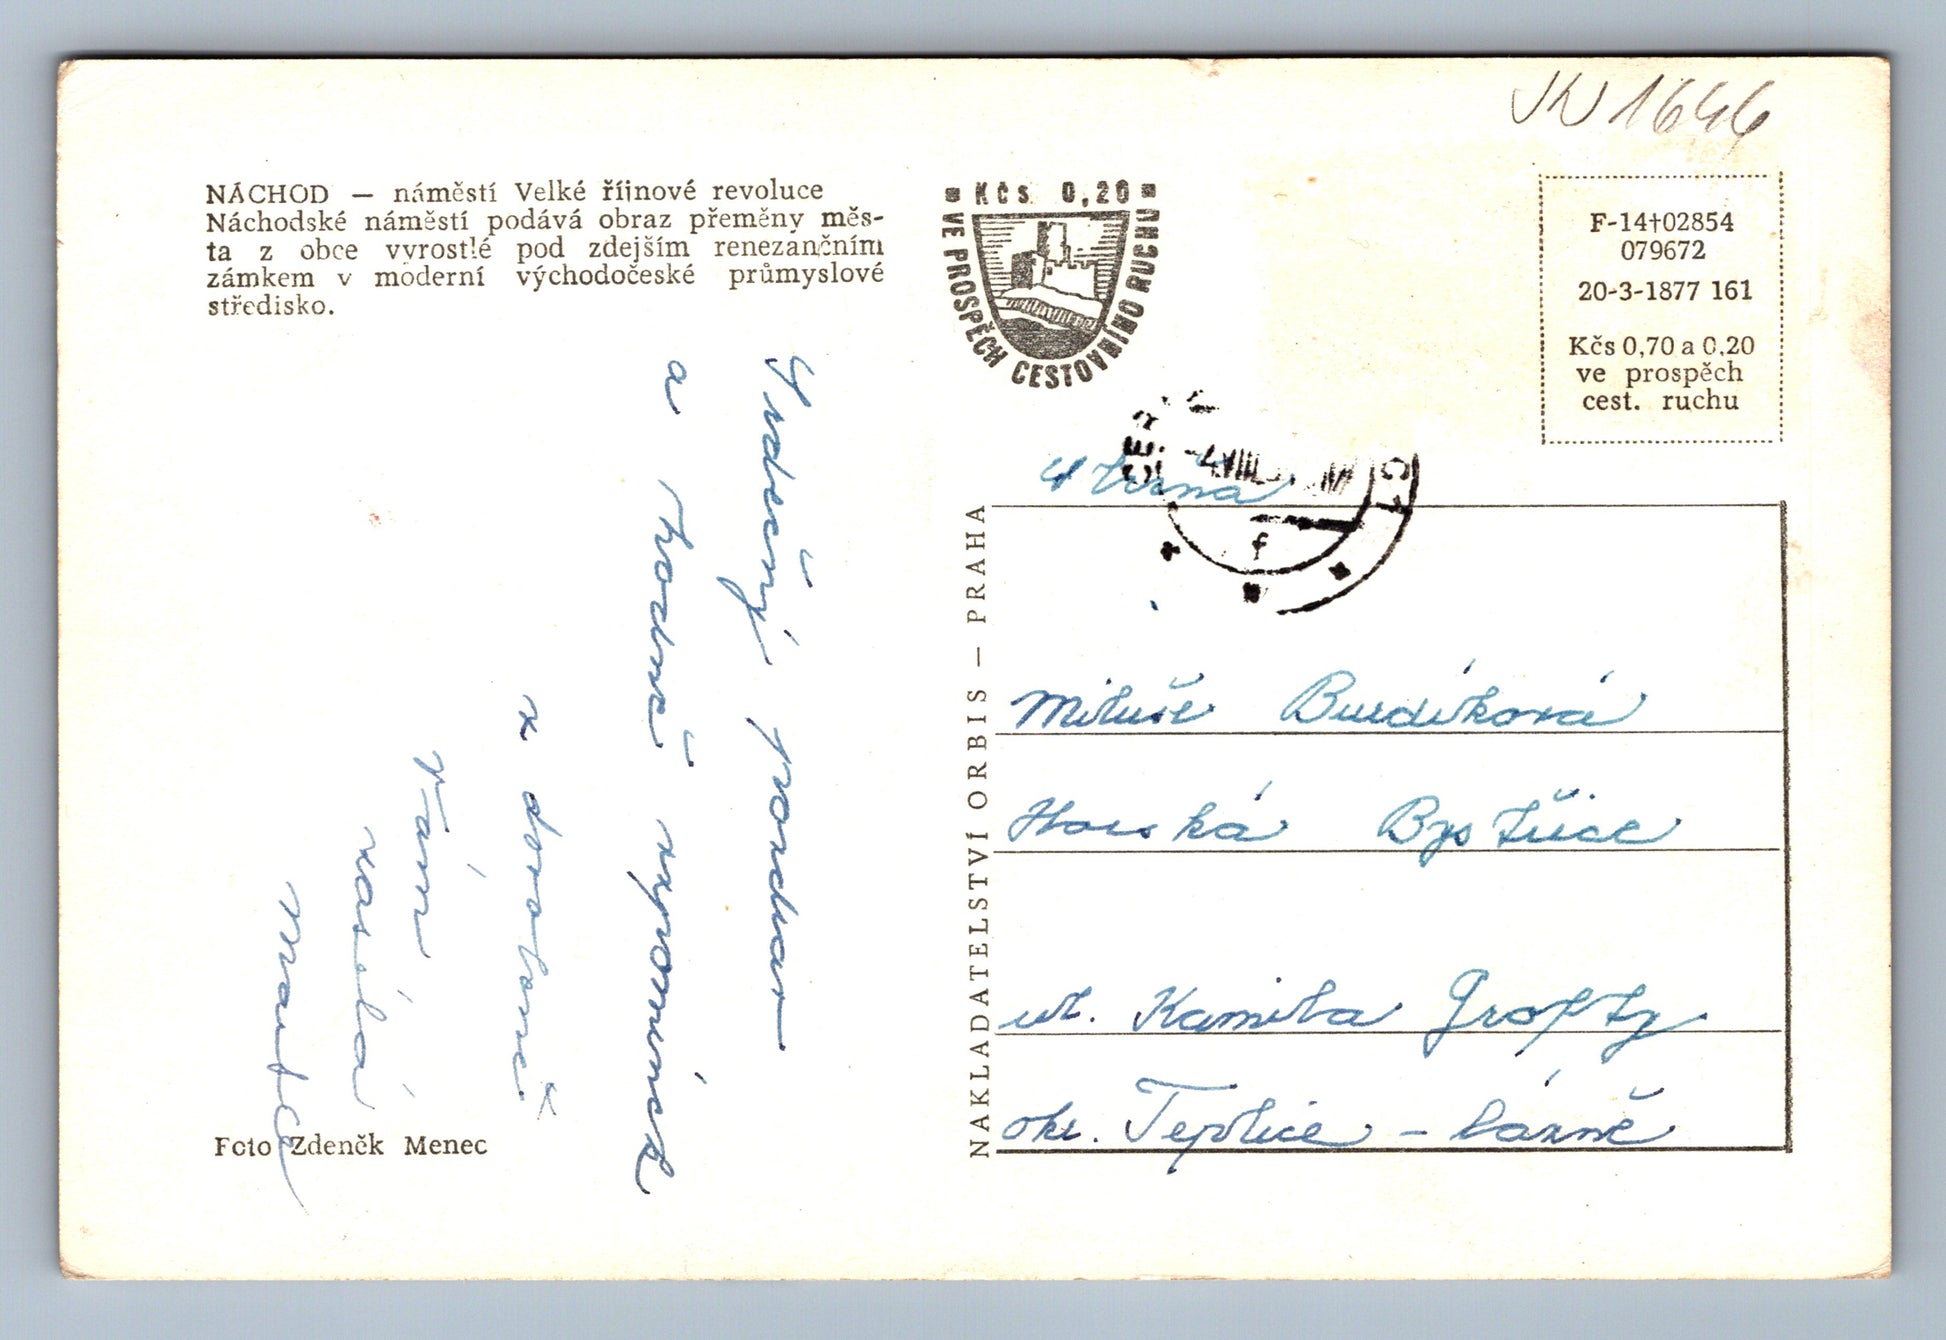 JW 1646
NÁCHOD — náměstí Velké říjnové revoluce
Náchodské náměstí podává obraz přeměny měs-
ta z obce vyrostlé pod zdejším renezančním
zámkem v moderní východočeské průmyslové
středisko.
KČS 0,20
VE PROSPĚCH CESTOVNÍHO RUCHU
F-14†02854
079672
20-3-1877 161
Kčs 0,70 a 0,20
ve prospěch
cest. ruchu
Srdečný pozdrav
a hodně vzpomínek
z dovolené
Vám
zasílá
Foto Zdeněk Menec
NAKLADATELSTVÍ ORBIS — PRAHA
Miluše Burdíková
Horská Bystřice
ul. Kamila
okr. Teplice - lázně